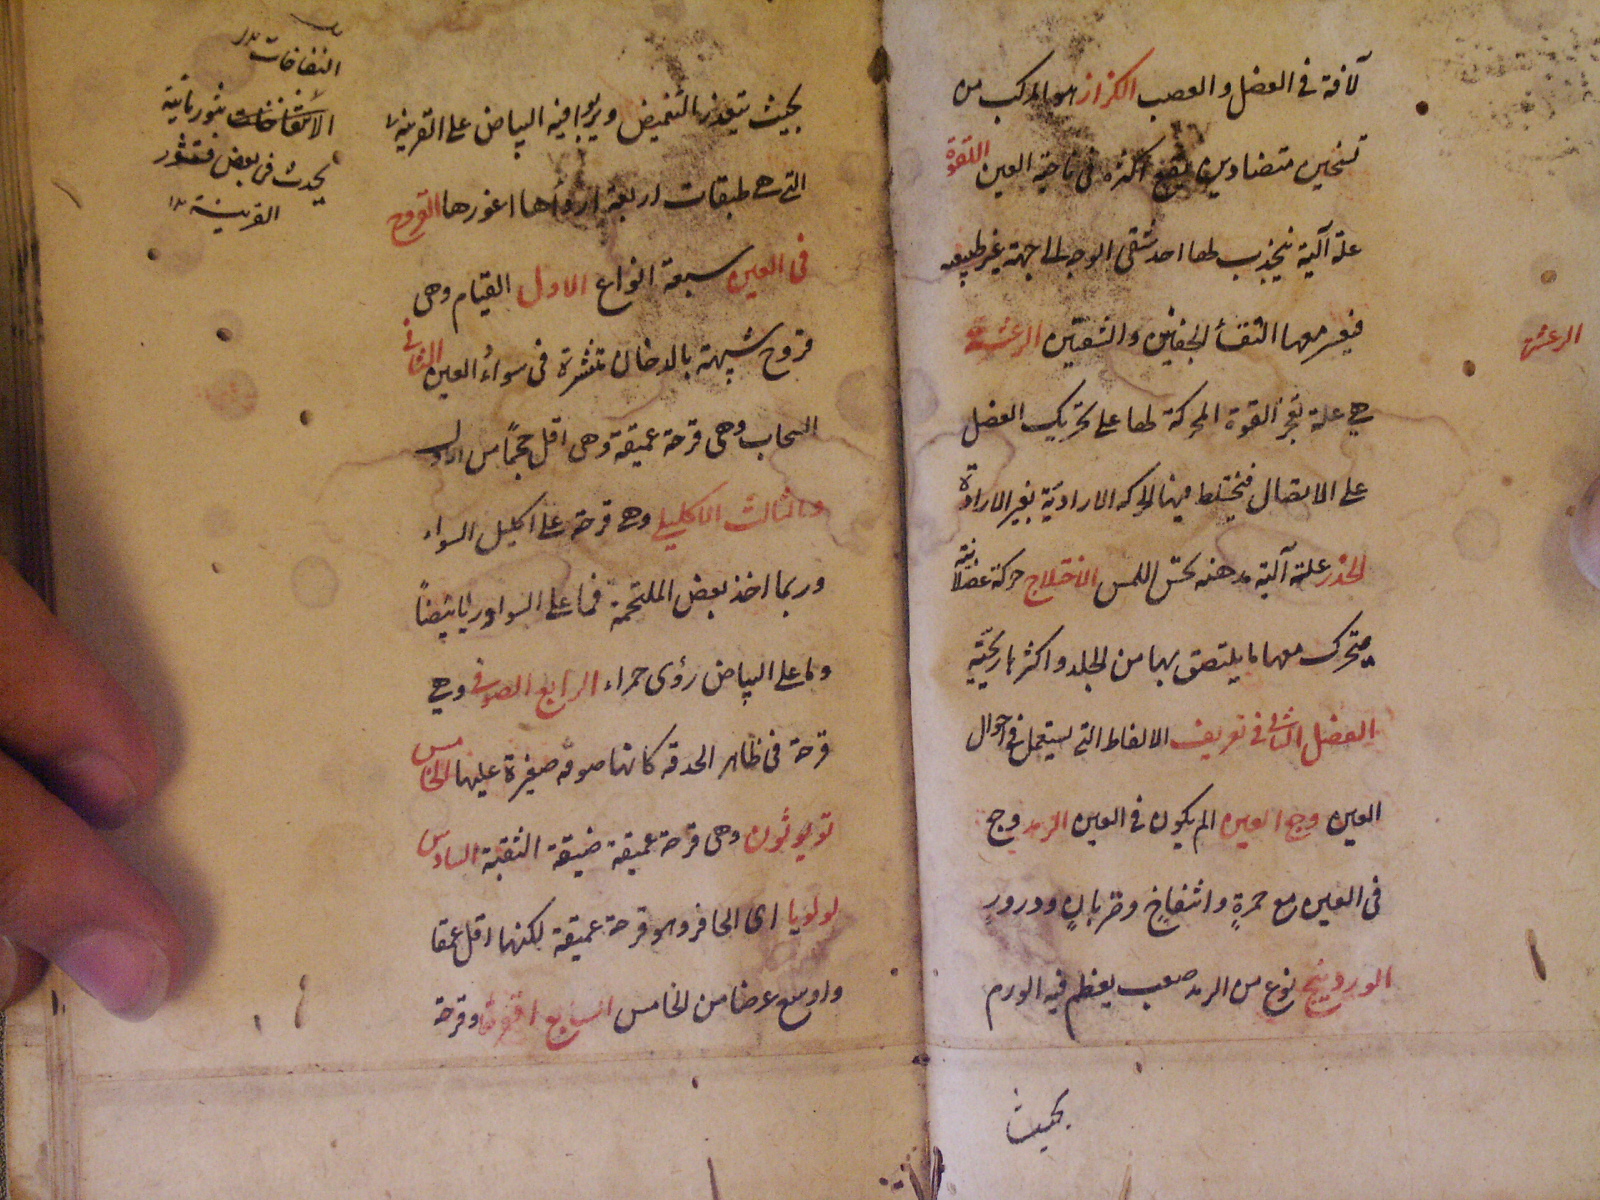 لآفة في العضل والعصب الكزاز هو المركب من
تشنجين متضادين يقع اكثره في ناحية العين اللقوة
علة آلية ينجذب لها احد شقي الوجه الى جهة غير طبيعية
فيعسر معها التقأ الجفنين والشفتين الرعشة
الرعشة
هي علة تعجز القوة المحركة لها على تحريك العضل
على الاتصال فيختلط فيها الحركة الارادية بغير الارادة
الخدر علة آلية حس اللمس الاختلاج حركة عضلانية
يتحرك معها ما يلتصق بها من الجلد واكثر ريحية
الفصل الثاني في تعريف الالفاظ التي يستعمل في احوال
العين وجع العين الم يكون في العين الرمد وجع
في العين مع حمرةٍ وانتفاخٍ وضربانٍ ودرورٍ
الوردينج نوع من الرمد صعب يعظم فيه الورم
بحيث
بحيث يتعذر التغميض ويربوا فيه البياض على القرنية
التي هي طبقات اربعة اردأها اغورها القروح
في العين سبعة انواع الاول القيام وهي
قروح شبيهة بالدخان منتشرة في سواد العين الثاني
السحاب وهي قرحة عميقة وهي اقل حجمًا من الاول
والثالث الاكليلي وهي قرحة على اكليل السواد
وربما اخذ بعض الملتحمة فما على السواد رؤي ابيضًا
وما على البياض رؤى حمراء الرابع الصوفي وهي
قرحة في ظاهر الحدقة كانها صوفة صغيرة عليها الخامس
توبوثون وهي قرحة عميقة ضيقة الثقبة السادس
لولويا اى الحافر وهو قرحة عميقة لكنها اقل عمقا
واوسع عرضا من الخامس السابع وقرحة
النفاخات
الانتفاخات بثور مائية
يحدث في بعض قشور
القرنية